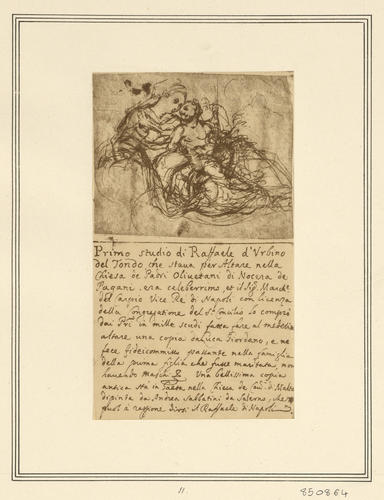 Primo studio di Raffaele d'Urbino
del Tondo che staua per Altare nella
Chiesa de Padri Oliuetani di Nocera de
Pagani, era celeberrimo, et il Sigr Marche
del Carpio Vice Re di Napoli con licenza
della Congregatione del So Concilio lo comprò
dai PPri in mille scudi fatta fare al medesimo
altare, una copia da Luca Giordano, e ne
fece fideicommisso passante nella famiglia
della prima figlia che fusse maritata, non
hauendo maschi. Una bellissima copia
antica sta in Gaeta, nella Chiesa de
dipinta da Andrea Sabbatini da Salerno, che
puol a raggione dirsi il Raffaele di Napoli
11.
850864